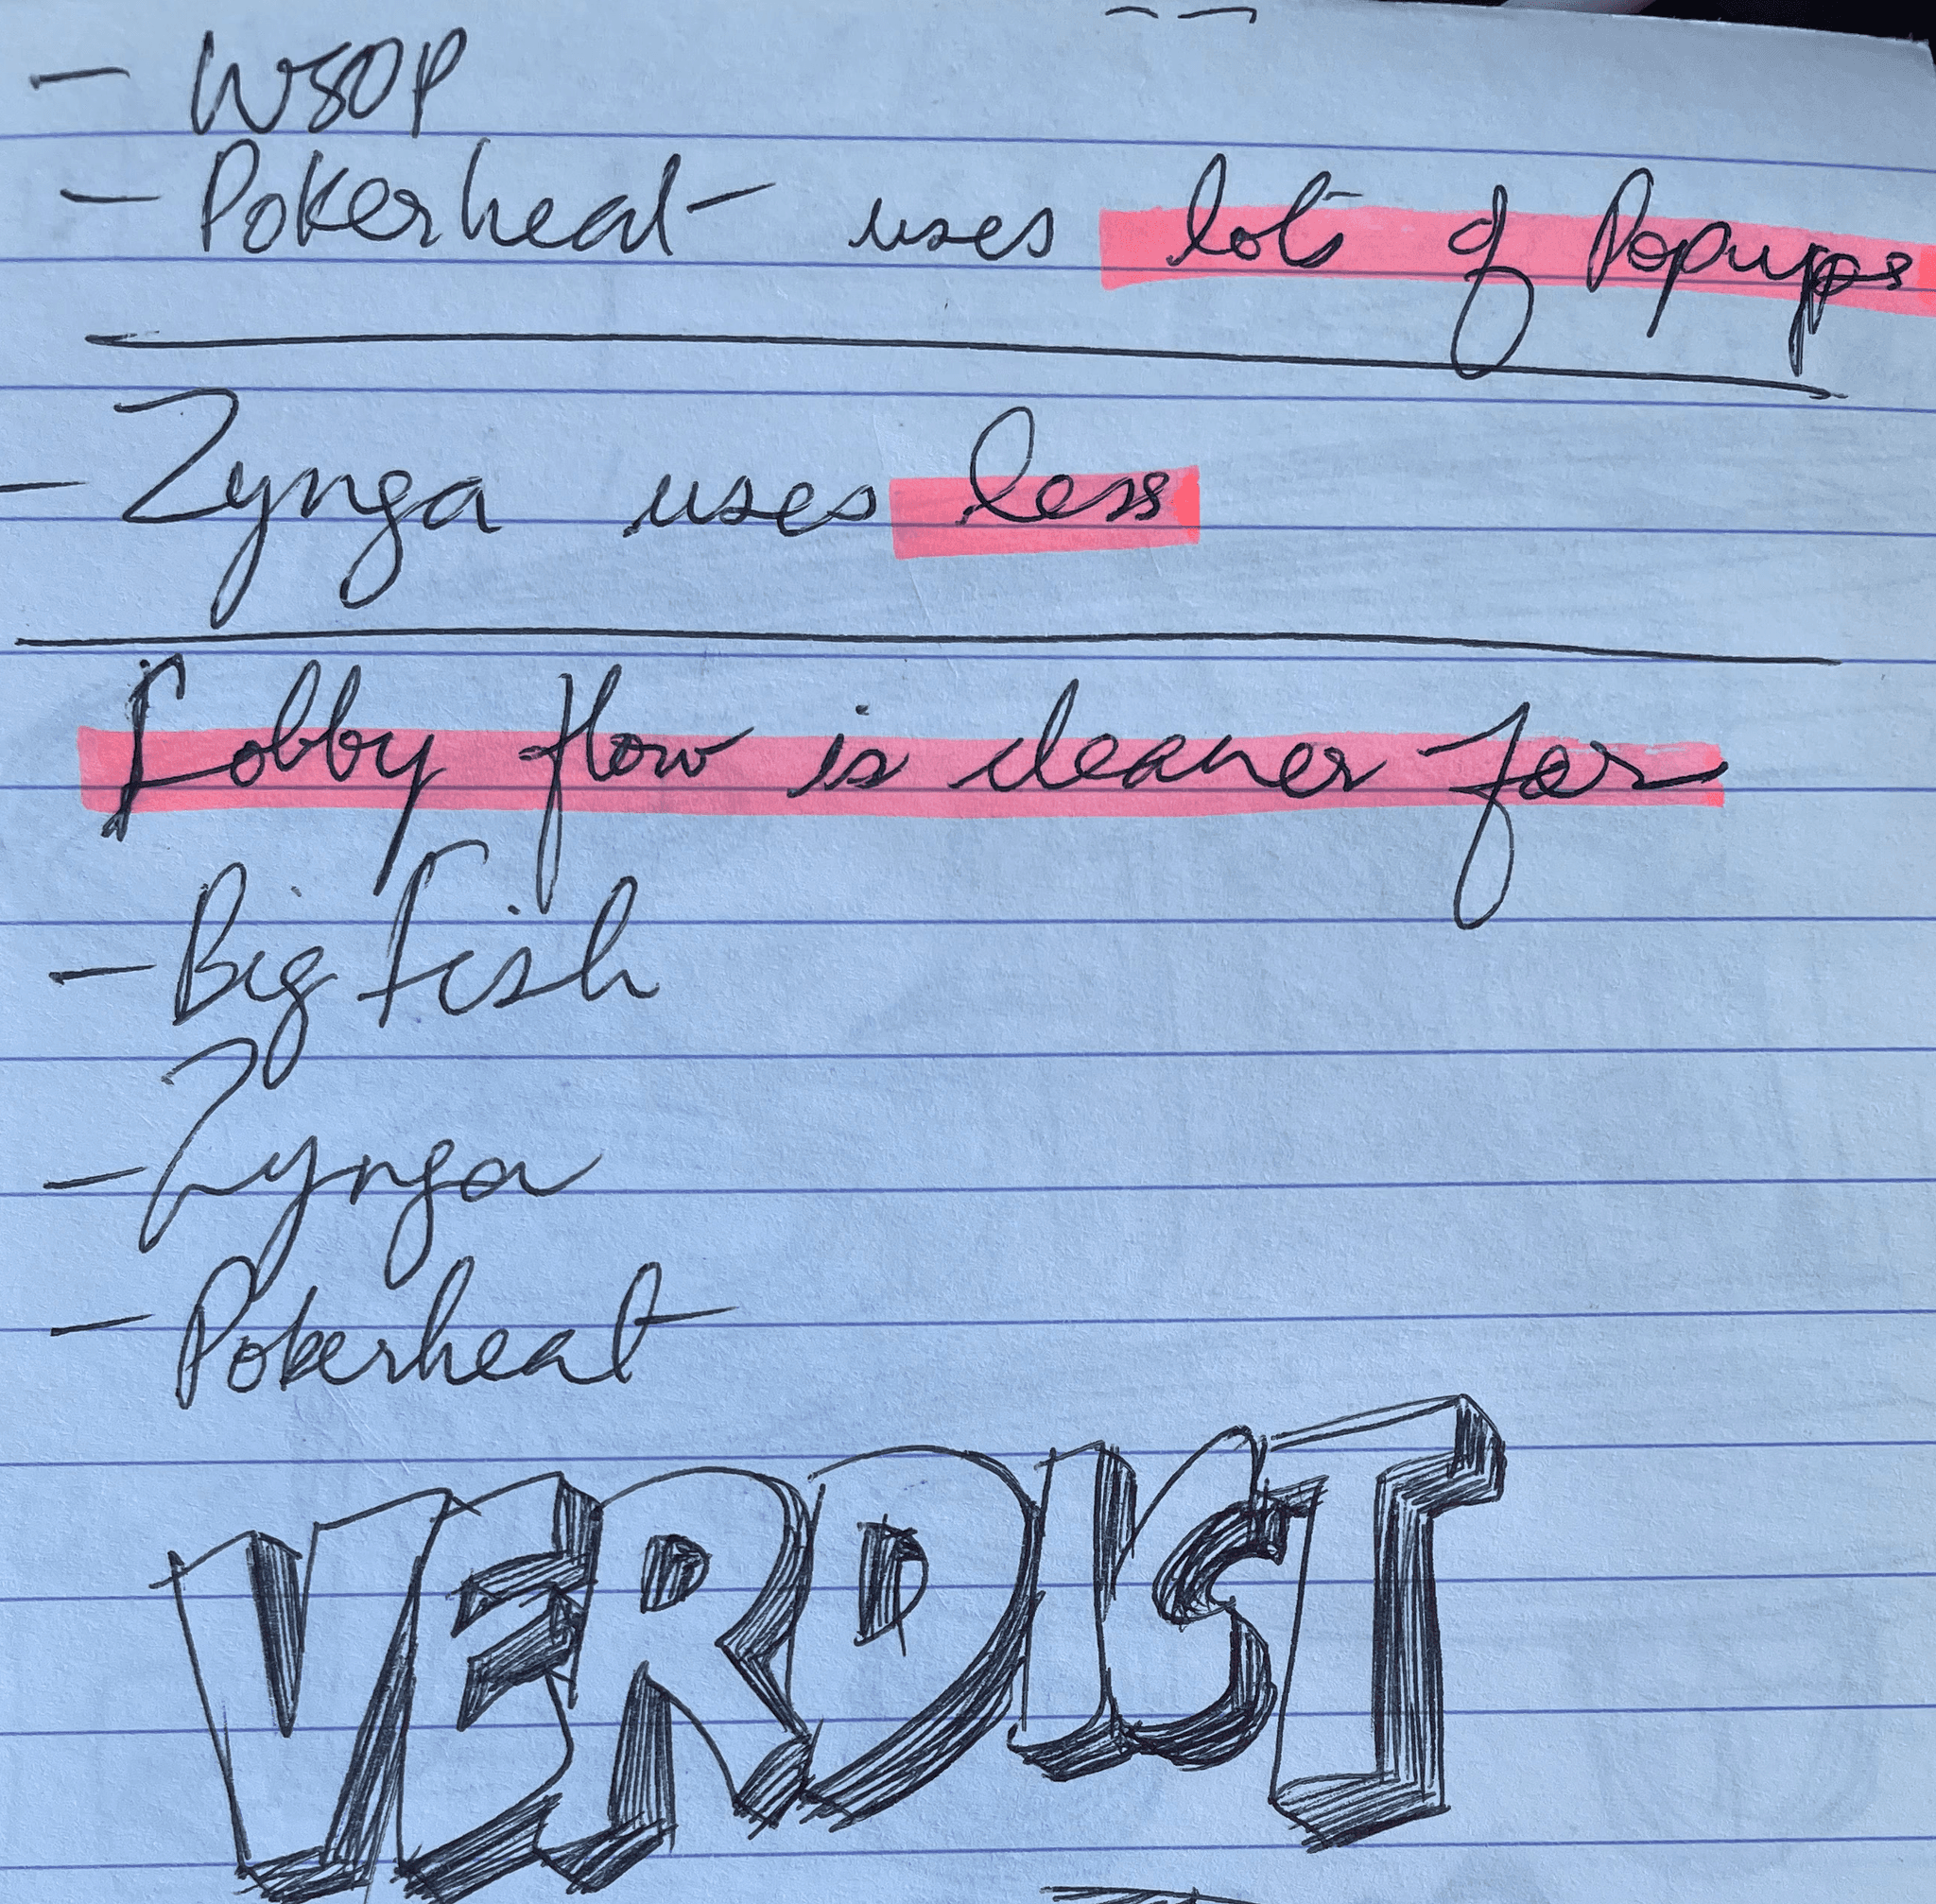 - WSOP
- Pokerheat uses lots of Popups
- Zynga uses less
Lobby flow is cleaner for
- Big Fish
- Zynga
- Pokerheat
VERDICT